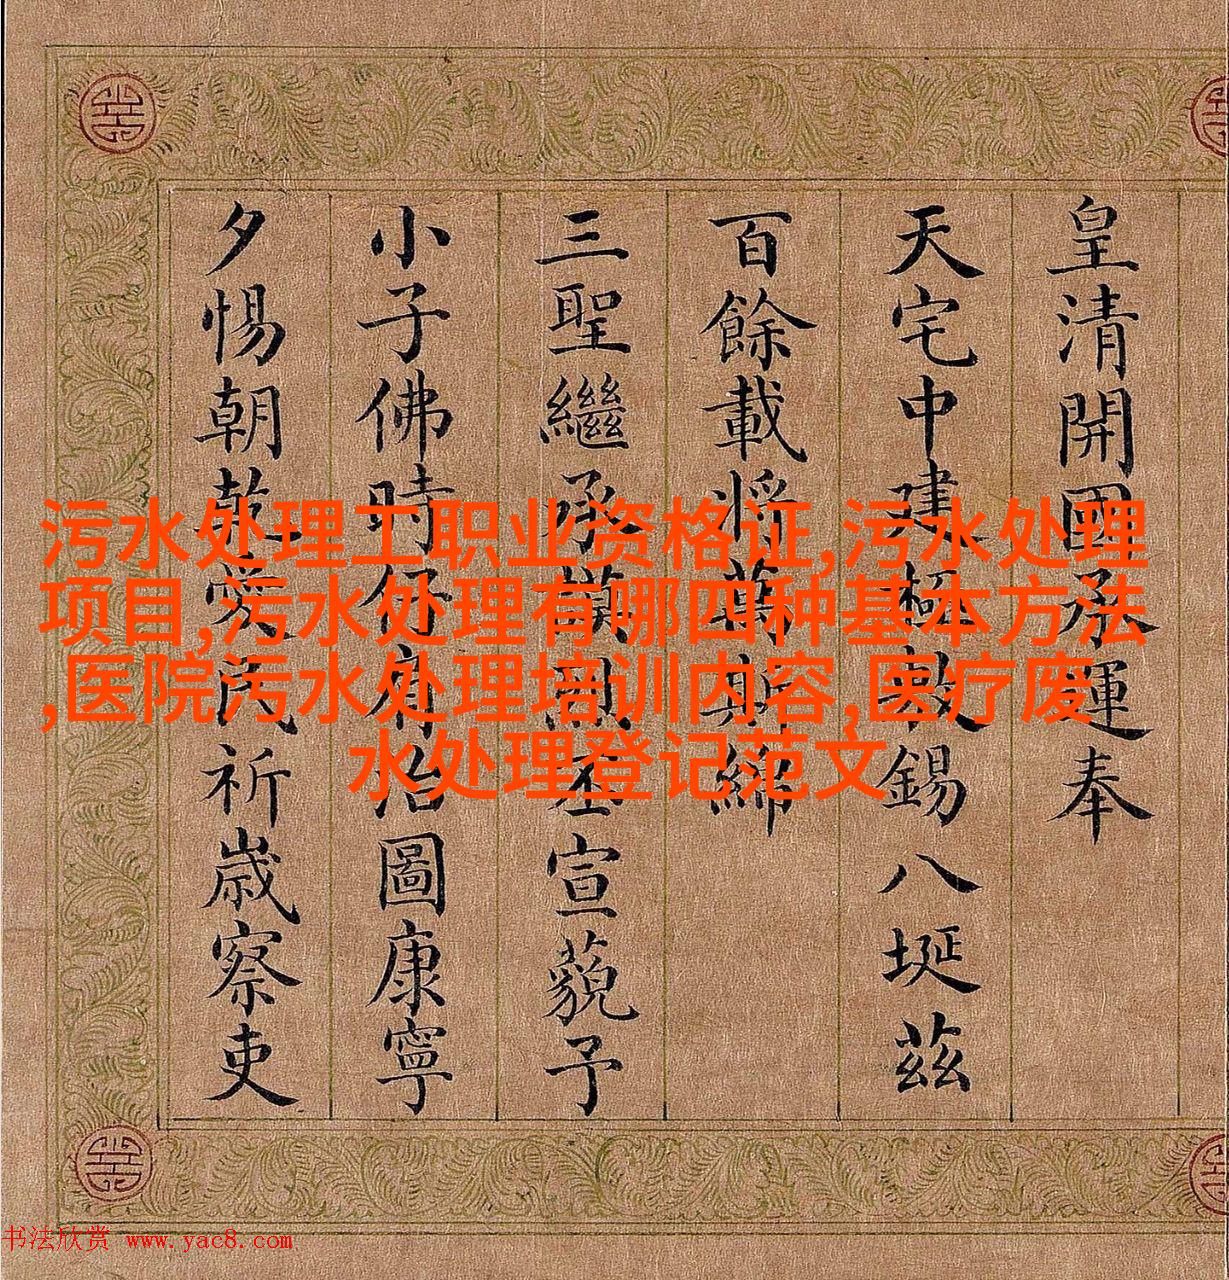 皇清開國承運奉
天宅中建極敷錫八埏茲
百餘載將萬斯綿
三聖繼承謨烈丕宣藐予
小子佛時仔肩治圖康寧
夕惕朝乾愛民祈歲察吏
污水处理工职业资格证,污水处理
项目,污水处理有哪四种基本方法
,医院污水处理培训内容,医疗废
水处理登记范文
书法欣赏 www.yac8.com